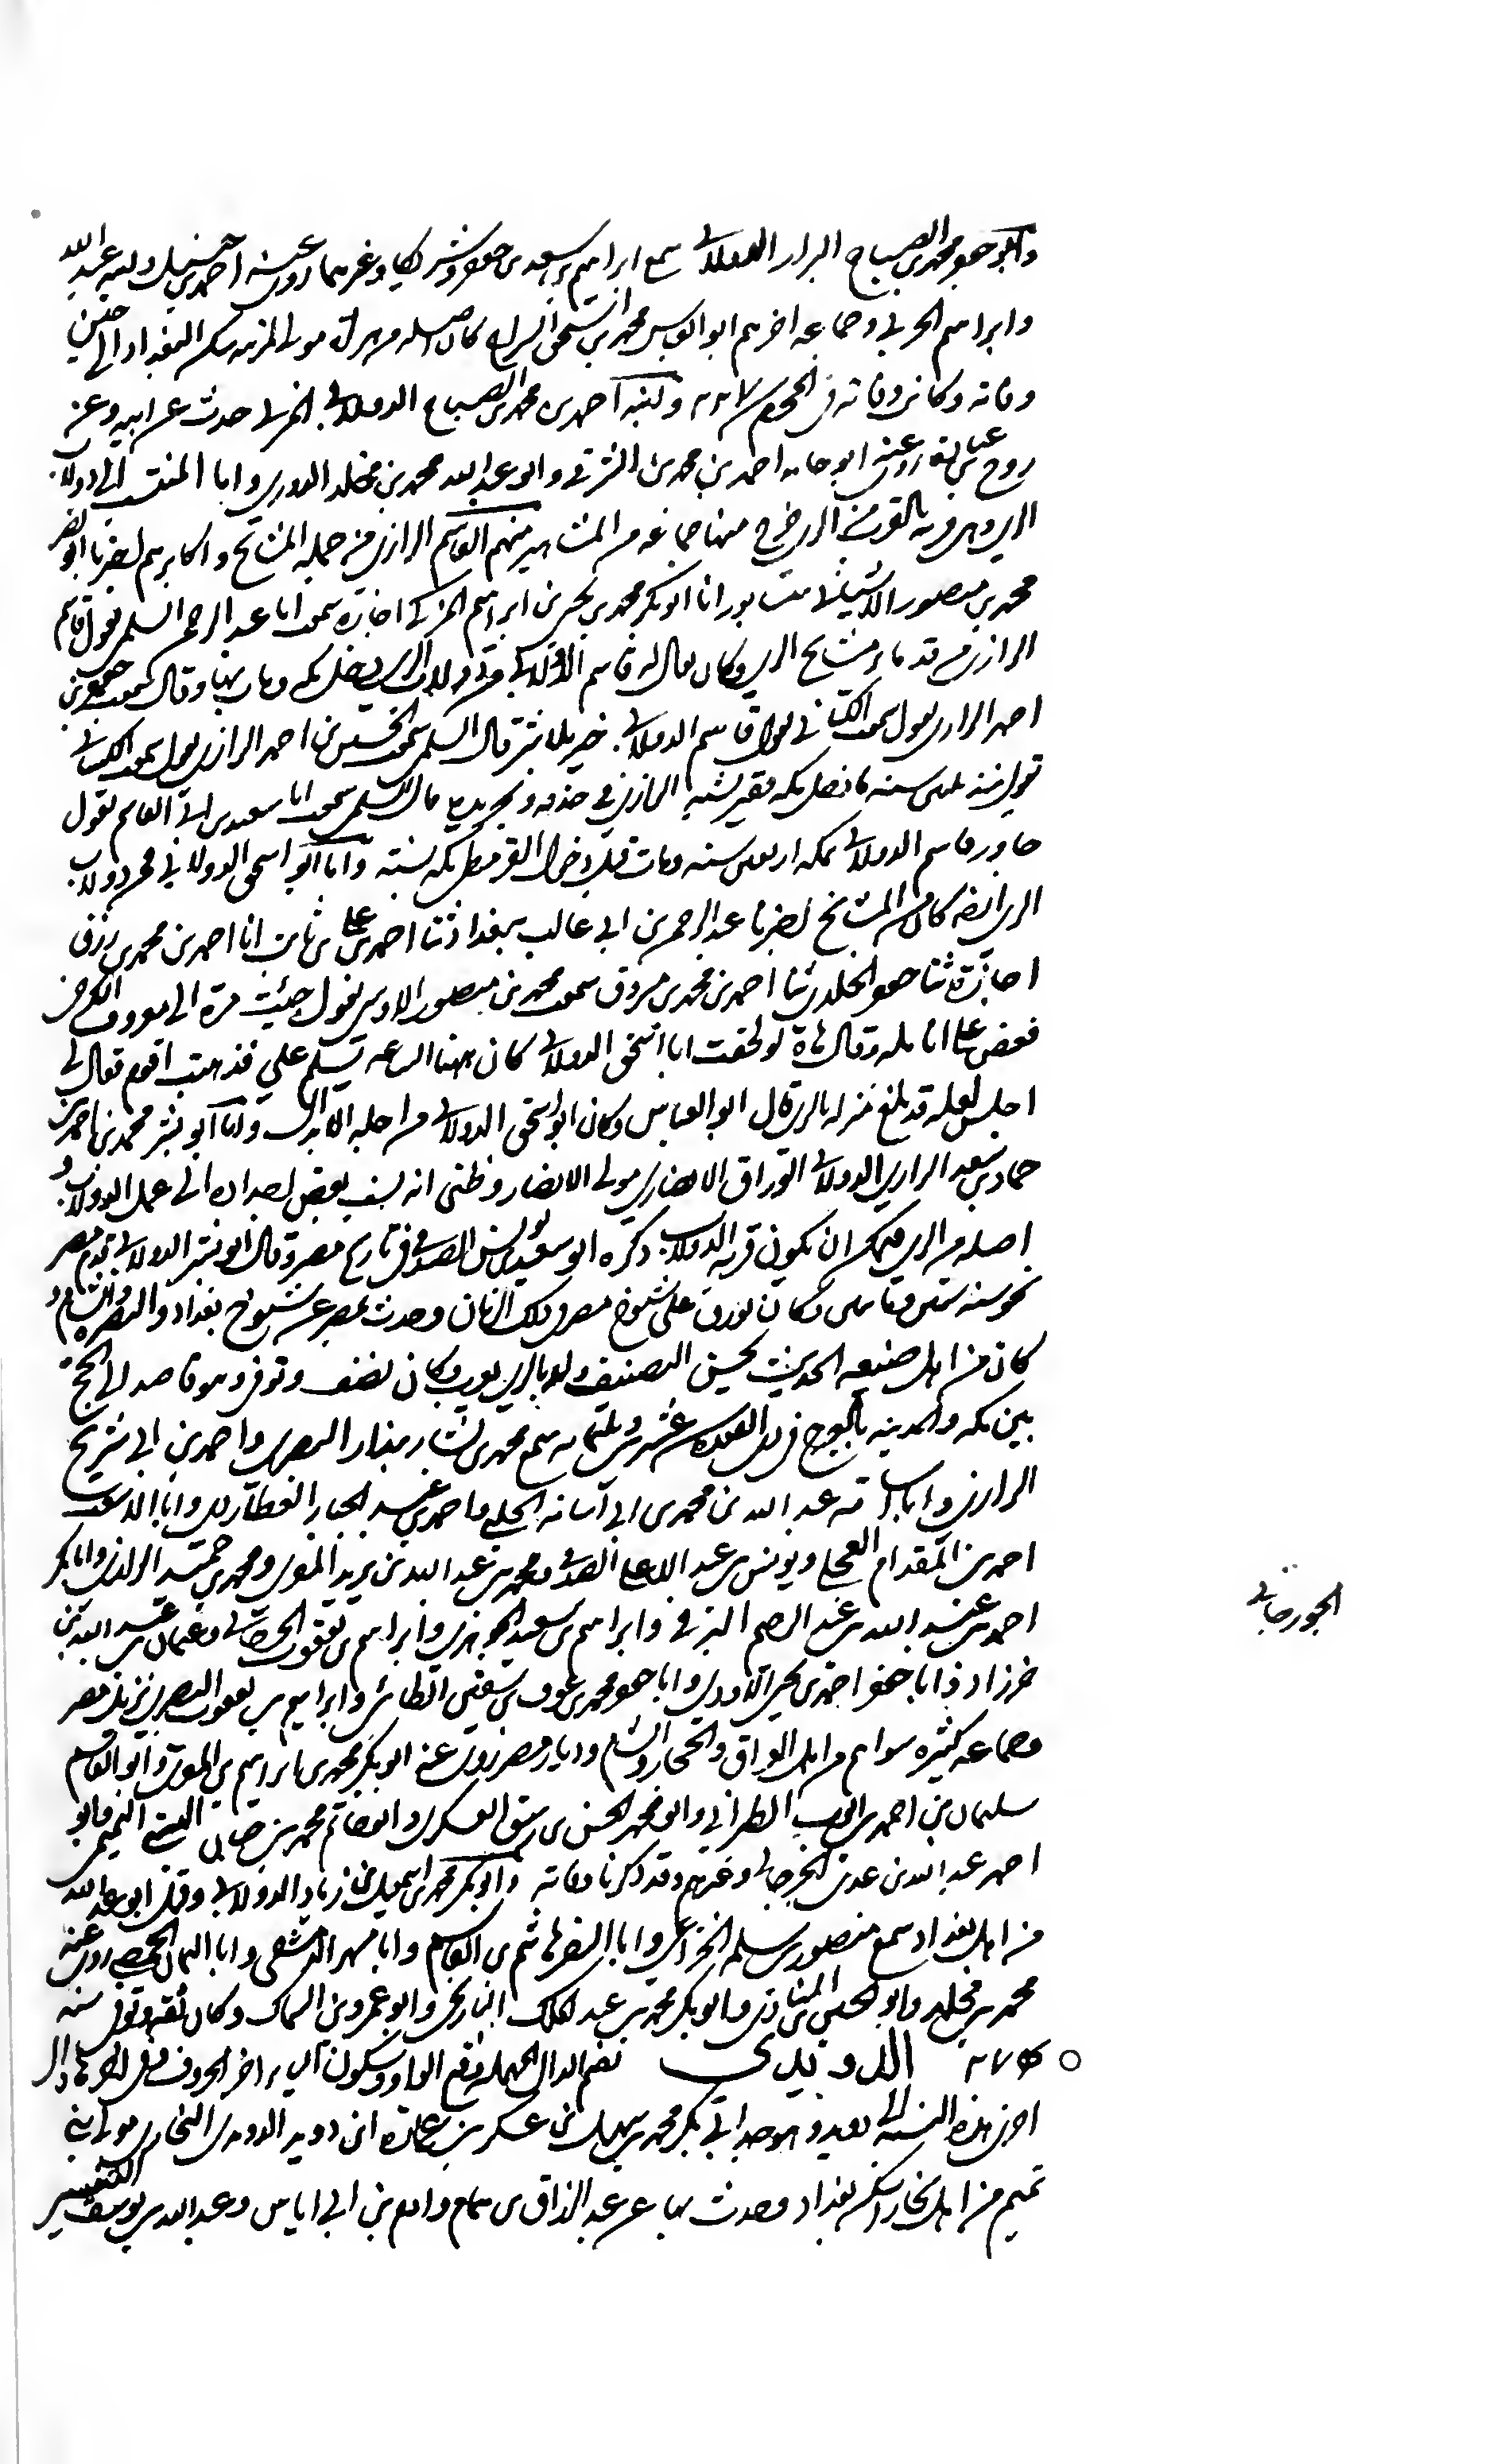 وابو جعفر محمد بن الصباح البزاز الدولابي سمع ابراهيم بن سعد واسمعيل بن جعفر وشريكا وغيرهما روى عنه احمد بن حنبل وابنه عبد الله
وابراهيم الحربي وجماعه اخرهم ابو العباس محمد بن اسحق السراج كان اصله من هراة مولى لمزينه سكن بغداد الى حين
وفاته وكانت وفاته فى المحرم سنة ٢٢٧ وابنه احمد بن محمد بن الصباح الدولابي حدث عن ابيه وعن
روح بن عباده روى عنه ابو حامد احمد بن محمد بن الشرقي وابو عبد الله محمد بن مخلد الدوري واما المنتسب الى دولاب
الري وهى قريه بالقرب من الري خرج منها جماعه من المشاهير منهم القاسم الرازي من جمله المشايخ واكابرهم اخبرنا ابو نصر
محمد بن منصور بنيسابور انا ابو بكر محمد بن يحيى بن ابراهيم المزكي اجازة سمعت ابا عبد الرحمن السلمي يقول قاسم
الرازي من قدماء مشايخ الري وكان يقال له قاسم الدولابي من دولاب الري دخل مكه ومات بها وقال سمعت جعفر بن
احمد الرازي يقول سمعت الكتاني يقول قاسم الدولابي خير بلا شر قال السلمي سمعت الحسين بن احمد الرازي يقول سمعت الكتاني
يقول منذ ثلثين سنه ما دخل مكه فقير يشبه الرازي في صدقه وتجريده قال السلمي سمعت ابا سعيد بن ابي القاسم يقول
جاور قاسم الدولابي بمكه اربعين سنه ومات قبل دخول القرمطي مكه بسنه واما ابو اسحق الدولابي فمن دولاب
الري ايضا كان من المشايخ اخبرنا عبد الرحمن بن ابي غالب ببغداد ثنا احمد بن علي بن ثابت انا احمد بن محمد بن رزق
اجازة ثنا جعفر الخلدي ثنا احمد بن محمد بن مسروق سمعت محمد بن منصور الطوسي يقول جئت مرة الى معروف الكرخي
فعض على انامله وقال هاه لو لحقت ابا اسحق الدولابي كان ههنا الساعه يسلم علي فذهبت اقوم فقال لي
اجلس لعله قد بلغ منزله بالري قال ابو العباس وكان ابو اسحق الدولابي من اجله الابدال واما ابو بشر محمد بن احمد بن
حماد بن سعد الرازي الدولابي الوراق الانصاري مولى الانصار وظني انه نسب بعض اجداده الى عمل الدولاب و
اصله من الري فيمكن ان يكون من قريه الدولاب ذكره ابو سعيد بن يونس الصدفي فى تاريخ مصر وقال ابو بشر الدولابي قدم مصر
نحو سنه ستين ومائتين وكان يورق على شيوخ مصر فى ذلك الزمان وحدث بمصر عن شيوخ بغداد والبصره والشام و
كان من اهل صنعه الحديث يحسن التصنيف وله بالحديث معرفه وكان يضعف وتوفي وهو قاصد الى الحج
بين مكه والمدينه بالعرج فى ذى القعده سنه عشر وثلثمائه سمع محمد بن بشار بندار البصري واحمد بن ابي سريج
الرازي وابا اسامه عبد الله بن محمد بن ابي اسامه الحلبي واحمد بن عبد الجبار العطاردي وابا الاشعث
احمد بن المقدام العجلي ويونس بن عبد الاعلى الصدفي ومحمد بن عبد الله بن يزيد المقري ومحمد بن حميد الرازي وابا بكر
احمد بن عبد الله بن عبد الرحيم البرقي وابراهيم بن سعيد الجوهري وابراهيم بن يعقوب وعثمان بن عبد الله بن
خرزاد وابا جعفر احمد بن يحيى الاودي وابا جعفر محمد بن عوف بن سفين الطائي وابراهيم بن يعقوب البصري نزيل مصر
وجماعه كثيره سواهم من اهل العراق والحجاز والشام وديار مصر روى عنه ابو بكر محمد بن ابراهيم بن المقري وابو القاسم
سليمان بن احمد بن ايوب الطبراني وابو محمد الحسن بن رشيق العسكري وابو حاتم محمد بن حبان البستي التميمي وابو
احمد عبد الله بن عدي الجرجاني وغيرهم وقد ذكرنا وفاته وابو بكر محمد بن اسمعيل بن زياد الدولابي وقيل ابو عبد الله
من اهل بغداد سمع منصور بن سلمه الخزاعي وابا النضر هاشم بن القاسم وابا مسهر الدمشقي وابا اليمان الحمصي روى عنه
محمد بن مخلد وابو الحسين بن المنادي وابو بكر محمد بن عبد الملك التاريخي وابو عمرو بن السماك وكان ثقه وتوفي سنه
٢٧٤ الدويدى بضم الدال المهمله وفتح الواو وسكون الياء اخر الحروف وفى اخرها دال
اخرى هذه النسبه الى دويد وهو جد ابي بكر محمد بن سهل بن عسكر بن عماره ابن دويد الدويدي البخاري مولى بني
تميم من اهل بخارا سكن بغداد وحدث بها عن عبد الرزاق بن همام وادم بن ابي اياس وعبد الله بن يوسف التنيسي
الجورجاني